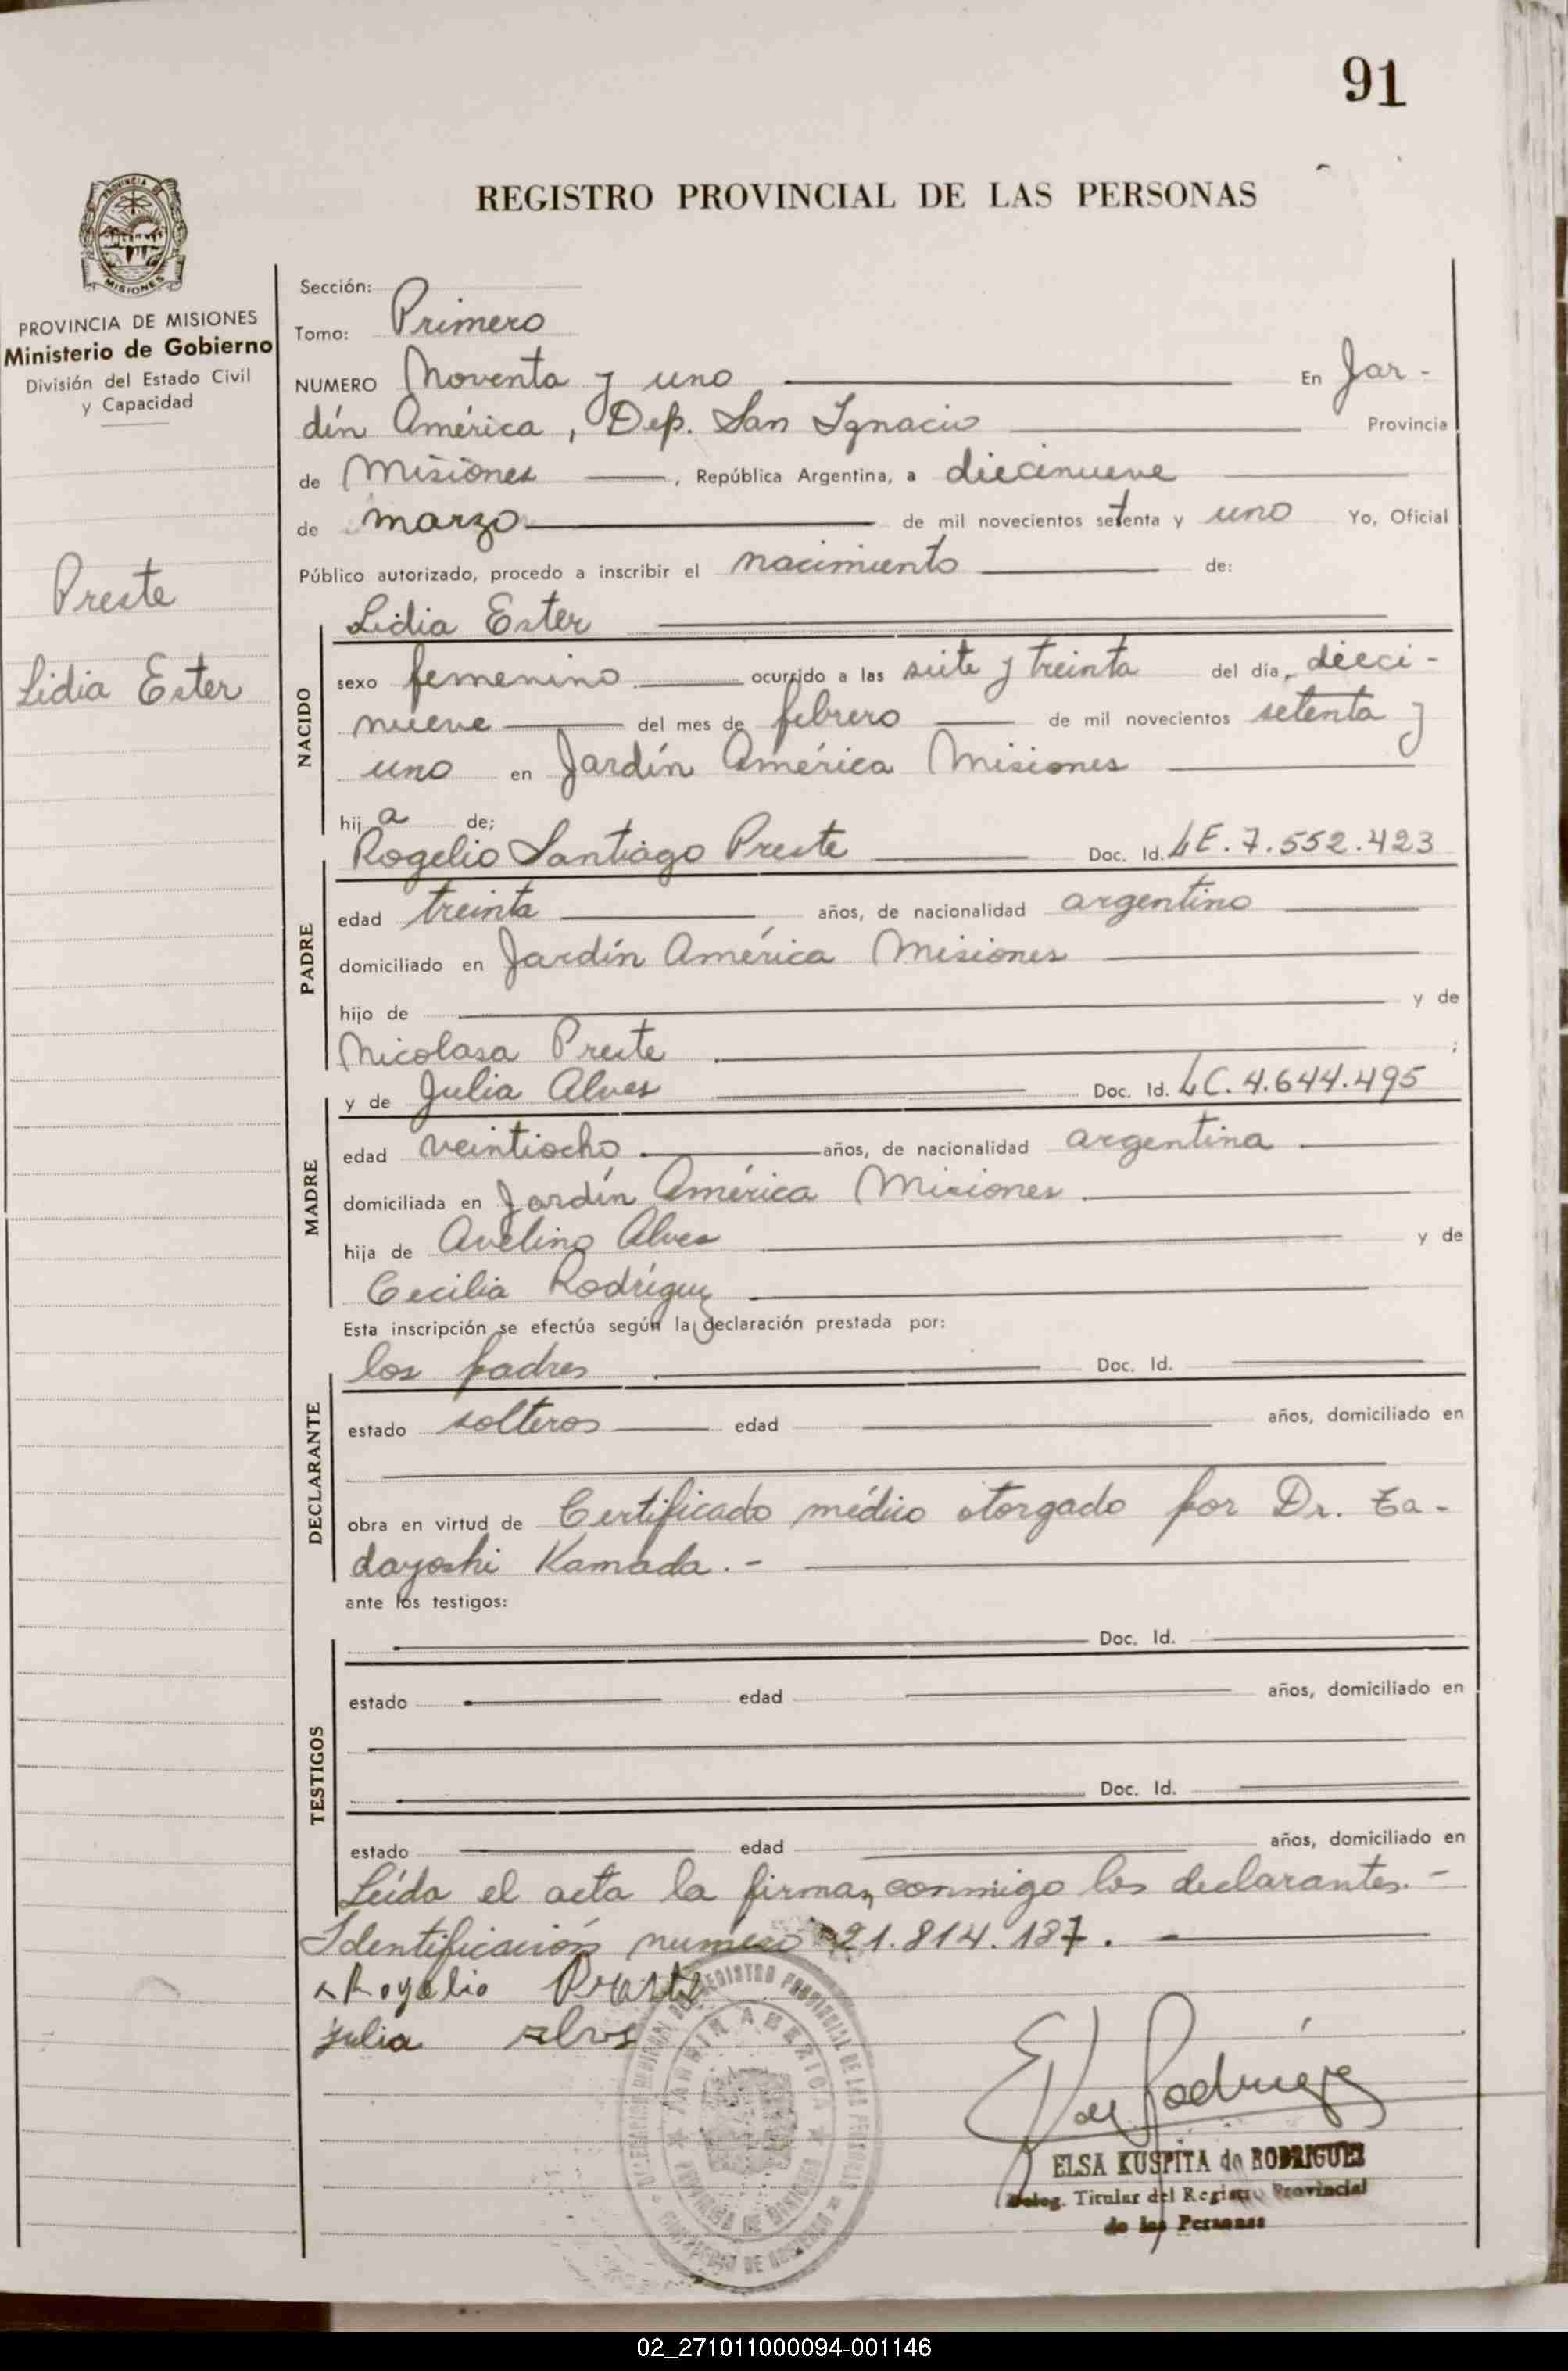 91
REGISTRO PROVINCIAL DE LAS PERSONAS
PROVINCIA DE MISIONES
Ministerio de Gobierno
División del Estado Civil
y Capacidad
Preste
Lidia Ester
Sección:
Tomo: Primero
NUMERO Noventa y uno En Jar-
dín América, Dep. San Ignacio Provincia
de Misiones, República Argentina, a diecinueve
de marzo de mil novecientos setenta y uno Yo, Oficial
Público autorizado, procedo a inscribir el nacimiento de:
Lidia Ester
NACIDO
sexo femenino ocurrido a las siete y treinta del día, dieci-
nueve del mes de febrero de mil novecientos setenta y
uno en Jardín América Misiones
hija de;
Rogelio Santiago Preste Doc. Id. LE. 7.552.423
PADRE
edad treinta años, de nacionalidad argentino
domiciliado en Jardín América Misiones
hijo de y de
Nicolasa Preste ;
y de Julia Alves Doc. Id. LC. 4.644.495
MADRE
edad veintiocho años, de nacionalidad argentina
domiciliada en Jardín América Misiones
hija de Avelino Alves y de
Cecilia Rodríguez
Esta inscripción se efectúa según la declaración prestada por:
los padres Doc. Id.
DECLARANTE
estado solteros edad años, domiciliado en
obra en virtud de Certificado médico otorgado por Dr. Ta-
dayoshi Kamada.-
ante los testigos:
Doc. Id.
TESTIGOS
estado edad años, domiciliado en
Doc. Id.
estado edad años, domiciliado en
Leída el acta la firman conmigo los declarantes.-
Identificación número 21.814.137.
Rogelio Preste
Julia alves
E K de Rodriguez
ELSA KUSPITA de RODRIGUEZ
Deleg. Titular del Registro Provincial
de las Personas
02_271011000094-001146